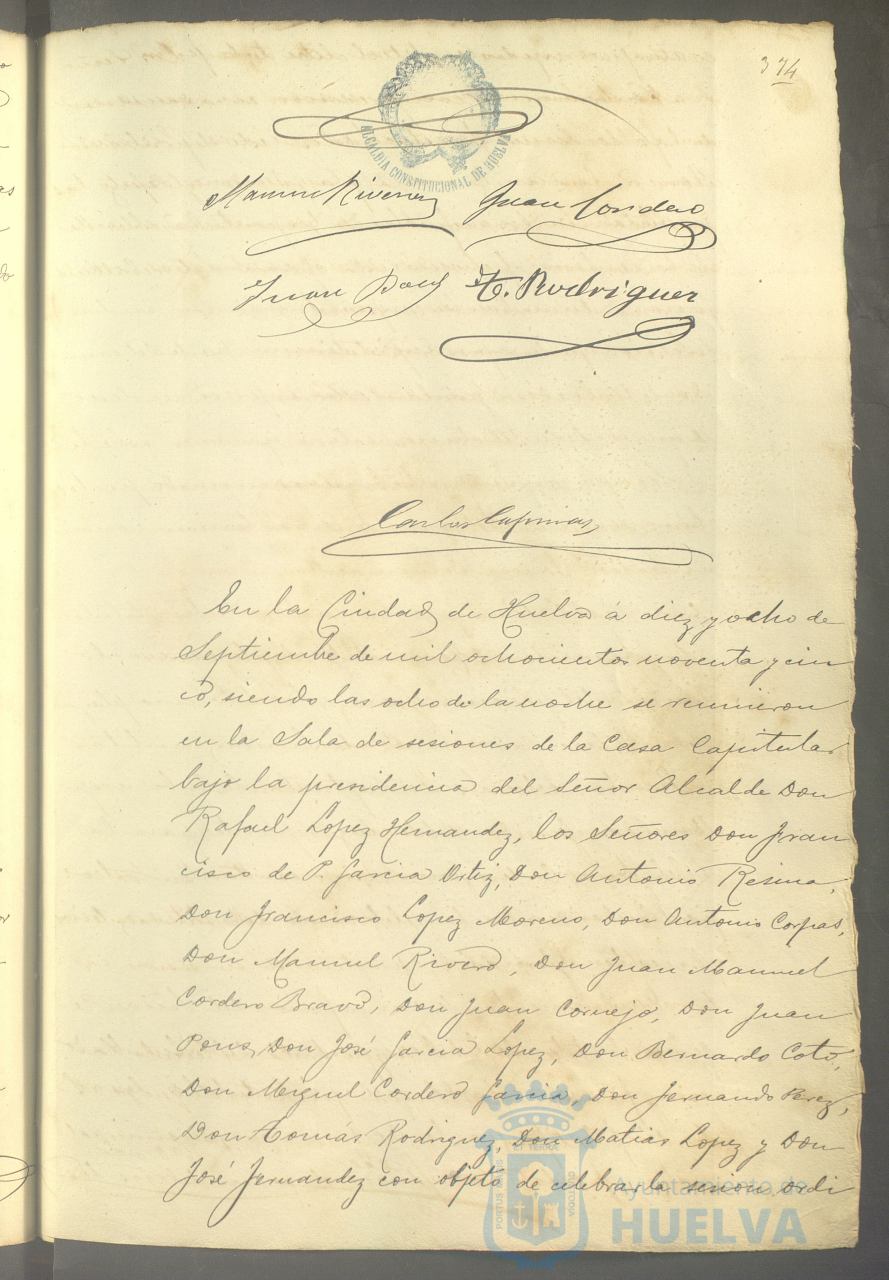 374
ALCALDIA CONSTITUCIONAL DE HUELVA
Manuel Rivero Juan Cordero
Juan Pons T. Rodriguez
Carlos
En la Ciudad de Huelva á diez y ocho de
Septiembre de mil ochocientos noventa y cin
co, siendo las ocho de la noche se reunieron
en la Sala de sesiones de la Casa Capitular
bajo la presidencia del Señor Alcalde Don
Rafael Lopez Hernandez, los Señores Don Fran
cisco de P. Garcia Ortiz, Don Antonio Resina,
Don Francisco Lopez Moreno, Don Antonio Corpas,
Don Manuel Rivero, Don Juan Manuel
Cordero Bravo, Don Juan Cornejo, Don Juan
Pons, Don José Garcia Lopez, Don Bernardo Coto,
Don Miguel Cordero Garcia, Don Fernando Perez,
Don Tomás Rodriguez, Don Matias Lopez y Don
José Fernandez con objeto de celebrar la sesion ordi
PORTUS MARIS ET TERRAE CUSTODIA
Ayuntamiento de
HUELVA